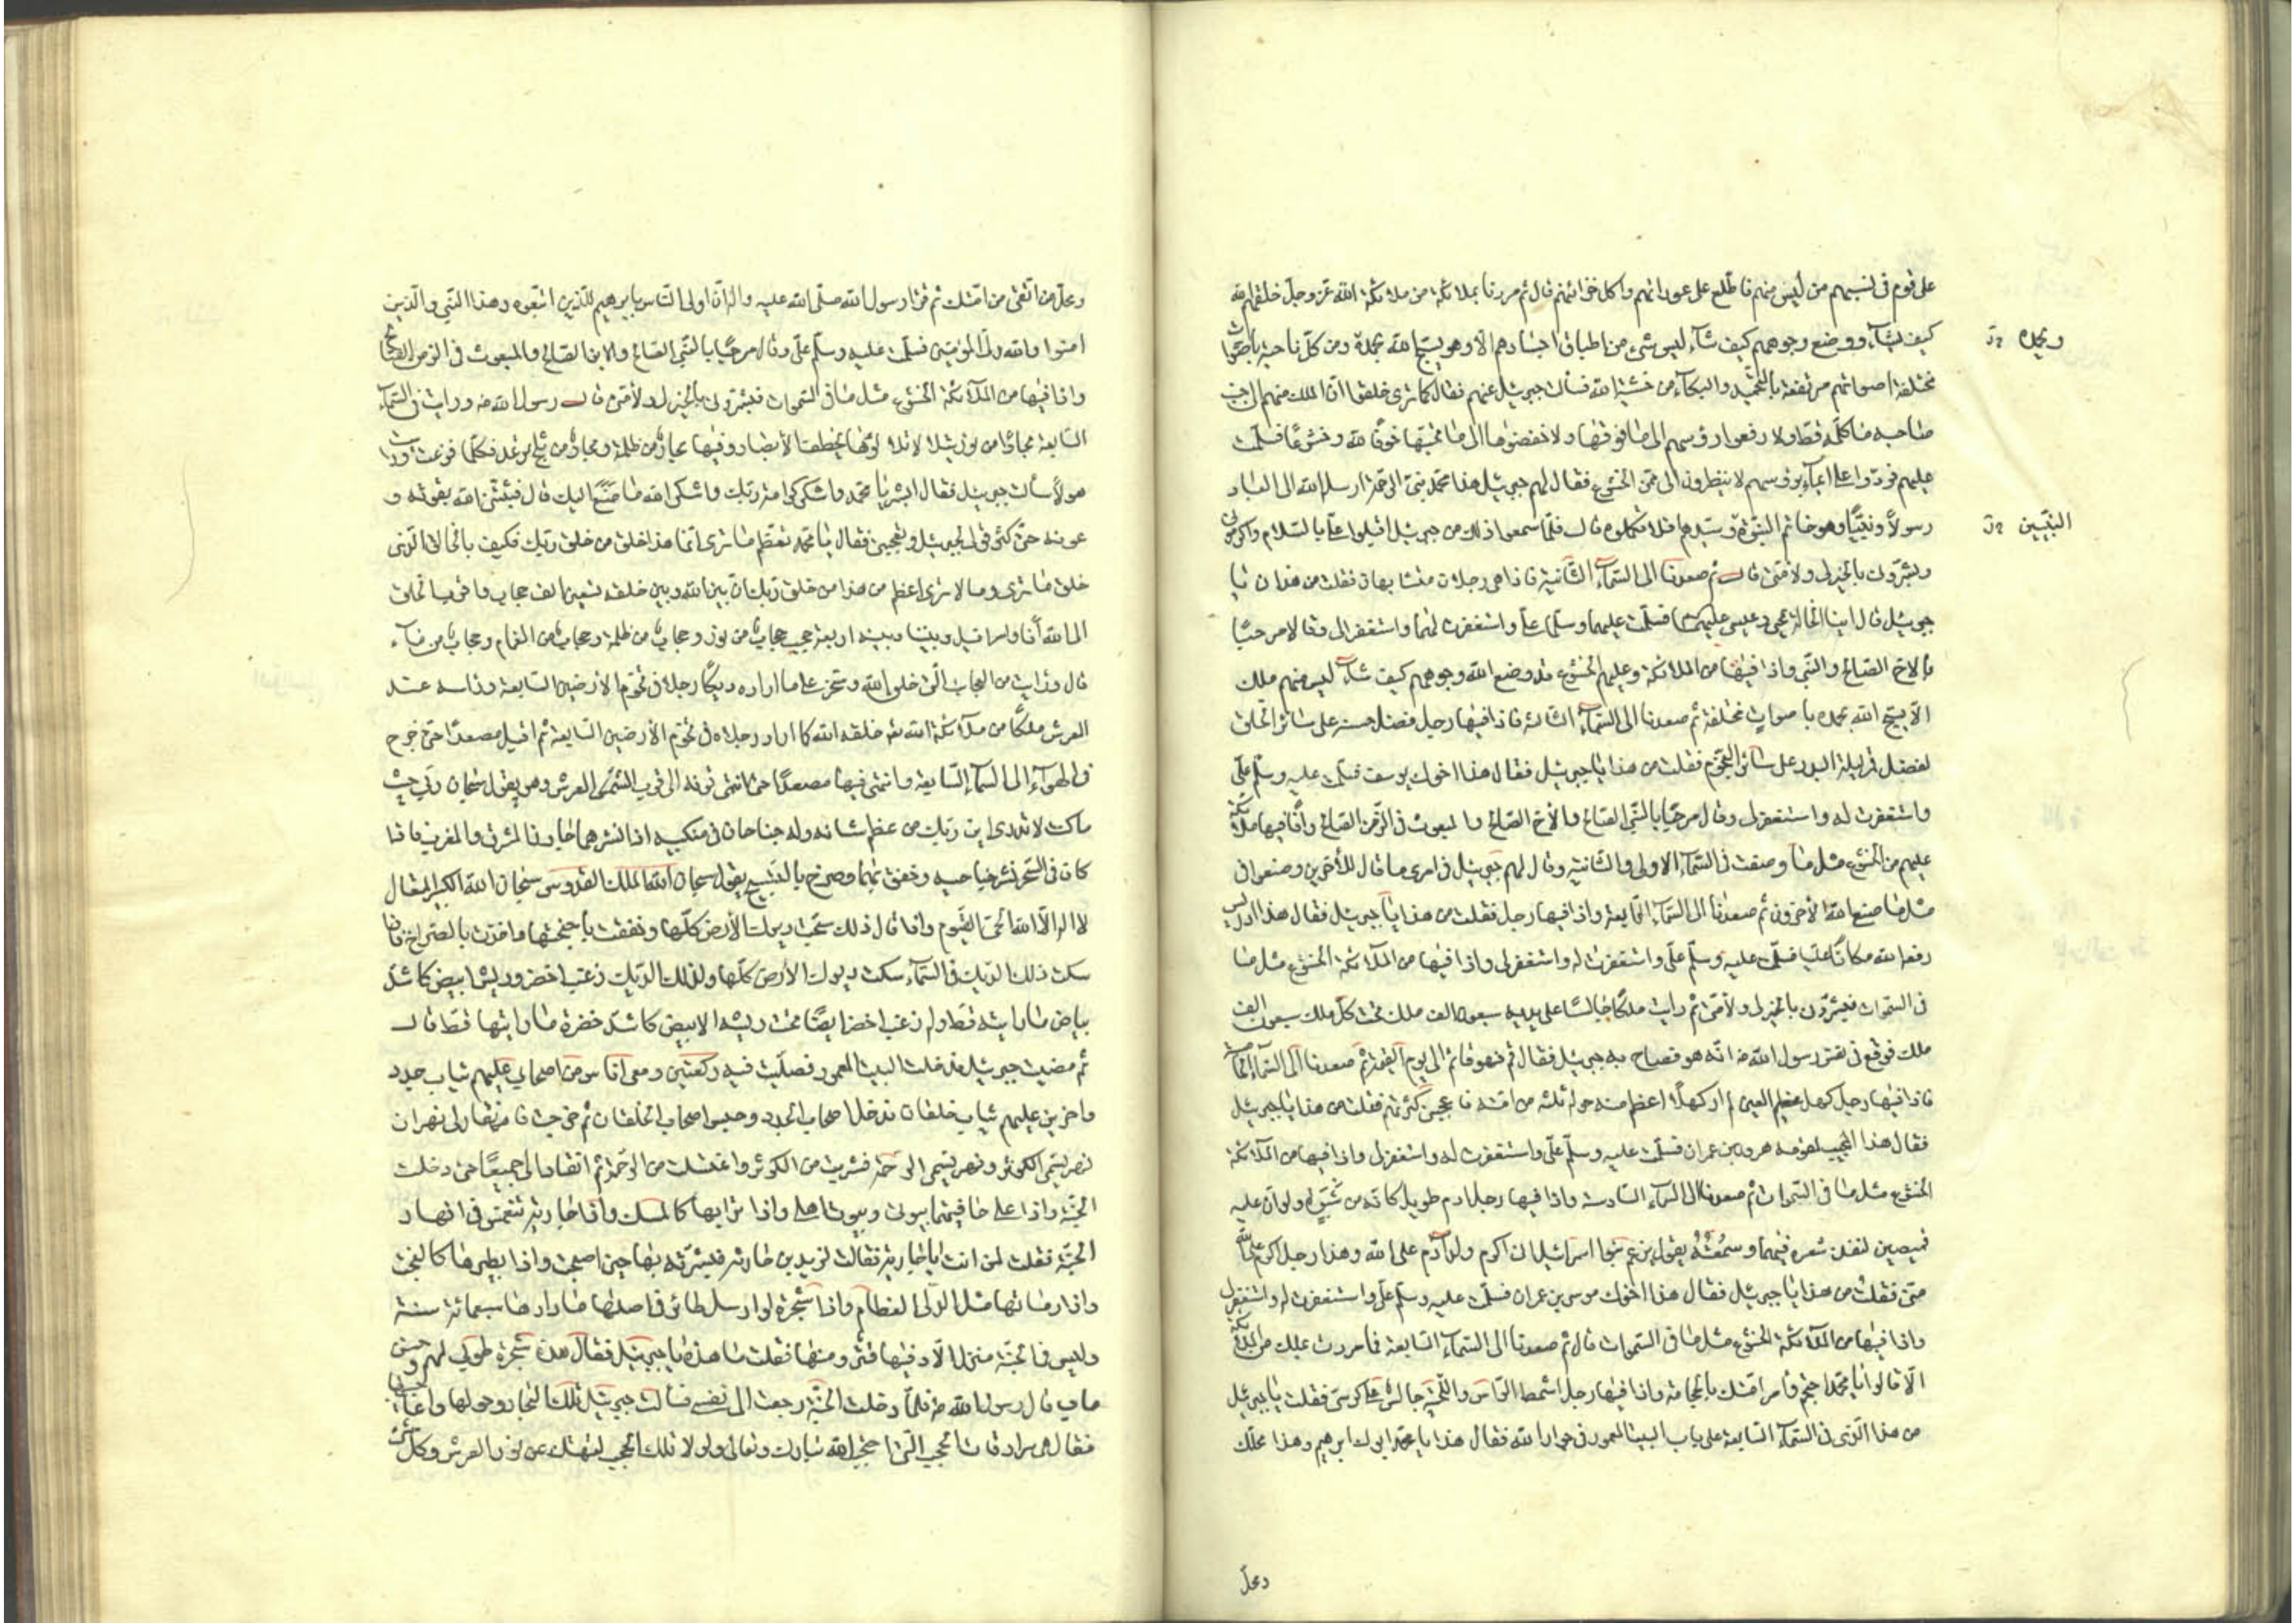 على قوم فى نسبهم من ليس منهم فاطلع على عوراتهم واكل خزائنهم قال ثم مررنا بملائكة من ملائكة الله عز وجل خلقهم الله
كيف شآء ووضع وجوههم كيف شآء ليس شئ من اطباق اجسادهم الا وهو يسبح الله بحمده ومن كل ناحية باصوات
وبحمده
مختلفة اصواتهم مرتفعة بالتحميد والبكآء من خشية الله فسألت جبرئيل عنهم فقال كما ترى خلقوا ان الملك منهم الى جنب
صاحبه ما كلمه قط ولا رفعوا رؤسهم الى ما فوقها ولا خفضوها الى ما تحتها خوفا لله وخشوعا فسلمت
عليهم فردوا على ايمآء برؤسهم لا ينظرون الى من الخشوع فقال لهم جبرئيل هذا محمد نبى الرحمة ارسله الله الى العباد
رسولا ونبيا وهو خاتم النبوة وسيدهم افلا تكلموه قال فلما سمعوا ذلك من جبرئيل اقبلوا على بالسلام واكرمونى
النبيين
وبشرونى بالخير لى ولامتى قال ثم صعدنا الى السمآء الثانية فاذا فيها رجلان متشابهان فقلت من هذان يا
جبرئيل قال ابنا الخالة يحيى وعيسى عليهما فسلمت عليهما وسلما على واستغفرت لهما واستغفرا لى وقالا مرحبا
بالاخ الصالح والنبى واذا فيها من الملائكة وعليهم الخشوع قد وضع الله وجوههم كيف شآء ليس منهم ملك
الا يسبح الله بحمده باصوات مختلفة ثم صعدنا الى السمآء الثالثة فاذا فيها رجل فضل حسنه على سائر الخلق
كفضل قمر ليلة البدر على سائر النجوم فقلت من هذا يا جبرئيل فقال هذا اخوك يوسف فسلمت عليه وسلم على
واستغفرت له واستغفر لى وقال مرحبا بالنبى الصالح والاخ الصالح والمبعوث فى الزمن الصالح واذا فيها ملائكة
عليهم من الخشوع مثل ما وصفت فى السمآء الاولى والثانية وقال لهم جبرئيل فى امرى ما قال للآخرين وصنعوا فى
مثل ما صنع الآخرون ثم صعدنا الى السمآء الرابعة واذا فيها رجل فقلت من هذا يا جبرئيل فقال هذا ادريس
رفعه الله مكانا عليا فسلمت عليه وسلم على واستغفرت له واستغفر لى واذا فيها من الملآئكة الخشوع مثل ما
فى السموات فبشرونى بالخير لى ولامتى ثم رايت ملكا جالسا على سرير تحت يديه سبعون الف ملك تحت كل ملك سبعون الف
ملك فوقع فى نفس رسول الله ص انه هو فصاح به جبرئيل فقال قم فهو قائم الى يوم القيمة ثم صعدنا الى السمآء الخامسة
فاذا فيها رجل كهل عظيم العين لم ار كهلا اعظم منه حوله ثلة من امته فاعجبنى كثرتهم فقلت من هذا يا جبرئيل
فقال هذا المجيب لقومه هرون بن عمران فسلمت عليه وسلم على واستغفرت له واستغفر لى واذا فيها من الملآئكة
الخشوع مثل ما فى السموات ثم صعدنا الى السمآء السادسة واذا فيها رجل ادم طويل كانه من شبوة ولو ان عليه
قميصين لنفذ شعره فيهما وسمعته يقول يزعم بنوا اسرائيل انى اكرم ولد آدم على الله وهذا رجل اكرم على الله
منى فقلت من هذا يا جبرئيل فقال هذا اخوك موسى بن عمران فسلمت عليه وسلم على واستغفرت له واستغفر لى
واذا فيها من الملآئكة الخشوع مثل ما فى السموات قال ثم صعدنا الى السمآء السابعة فما مررت بملك من الملآئكة
الا قالوا يا محمد احتجم وأمر امتك بالحجامة واذا فيها رجل اشمط الراس واللحية جالس على كرسى فقلت يا جبرئيل
من هذا الذى فى السمآء السابعة على باب البيت المعمور فى جوار الله فقال هذا يا محمد ابوك ابرهيم وهذا محلك
ومحل
ومحل من اتقى من امتك ثم قرأ رسول الله صلى الله عليه واله ان اولى الناس بابرهيم للذين اتبعوه وهذا النبى والذين
امنوا والله ولى المؤمنين فسلمت عليه وسلم على وقال مرحبا بالنبى الصالح والابن الصالح والمبعوث فى الزمن الصالح
واذا فيها من الملآئكة الخشوع مثل ما فى السموات فبشرونى بالخير لى ولامتى قال رسول الله ص ورايت فى السمآء
السابعة بحارا من نور يتلألأ يكاد تلألؤها يخطف الابصار وفيها بحار من ظلمة وبحار من ثلج يرعد فكلما فزعت ورايت
هولا سألت جبرئيل فقال ابشر يا محمد واشكر كرامة ربك واشكر الله ما صنع اليك قال فثبتنى الله بقوته و
عونه حتى كثر قولى لجبرئيل وتعجبى فقال يا محمد تعظم ما ترى انما هذا خلق من خلق ربك فكيف بالخالق الذى
خلق ما ترى وما لا ترى اعظم من هذا من خلق ربك ان بين الله وبين خلقه تسعين الف حجاب واقرب الخلق
الى الله أنا واسرافيل وبيننا وبينه اربعة حجب حجاب من نور وحجاب من ظلمة وحجاب من الغمام وحجاب من مآء
قال ورايت من العجايب التى خلق الله وسخر على ما اراده ديكا رجلاه فى تخوم الارضين السابعة وراسه عند
العرش ملكا من ملآئكة الله تع خلقه الله كما اراد رجلاه فى تخوم الارضين السابعة ثم اقبل مصعدا حتى خرج
فى الهوآء الى السمآء السابعة وانتهى فيها مصعدا حتى انتهى قرنه الى قرب العرش وهو يقول سبحان ربى حيث
ما كنت لا تدرى اين ربك من عظم شانه وله جناحان فى منكبيه اذا نشرهما جاوزا المشرق والمغرب فاذا
كان فى السحر نشر جناحيه وخفق بهما وصرخ بالتسبيح يقول سبحان الله الملك القدوس سبحان الله الكبير المتعال
لا اله الا الله الحى القيوم واذا قال ذلك سبحت ديوك الارض كلها وخفقت باجنحتها واخذت بالصراخ فاذا
سكت ذلك الديك فى السمآء سكت ديوك الارض كلها ولذلك الديك زغب اخضر وريش ابيض كاشد
بياض ما رايته قط وله زغب اخضر ايضا تحت ريشه الابيض كاشد خضرة ما رايتها قط قال
ثم مضيت مع جبرئيل فدخلت البيت المعمور فصليت فيه ركعتين ومعى اناس من اصحابى عليهم ثياب جدد
واخرين عليهم ثياب خلقان فدخل اصحاب الجدد وحبس اصحاب الخلقان ثم خرجت فانقاد لى نهران
نهر يسمى الكوثر ونهر يسمى الرحمة فشربت من الكوثر واغتسلت من الرحمة ثم انقادا لى جميعا حتى دخلت
الجنة واذا على حافتيهما بيوتى وبيوت اهلى واذا ترابها كالمسك واذا جارية تنغمس فى انهار
الجنة فقلت لمن انت يا جارية فقالت لزيد بن حارثة فبشرته بها حين اصبحت واذا بطيرها كالبخت
واذا رمانها مثل الدلى العظام واذا شجرة لو ارسل طائر فى اصلها ما دارها سبعمائة سنة
وليس فى الجنة منزل الا وفيها قتر منها فقلت ما هذه يا جبرئيل فقال هذه شجرة طوبى لهم وحسن
مآب قال رسول الله ص فلما دخلت الجنة رجعت الى نفسى فسألت جبرئيل عن تلك البحار وهولها واعاجيبها
فقال هى سرادقات الحجب التى احتجب الله تبارك وتعالى ولولا تلك الحجب لتهتك عن نور العرش وكل شئ